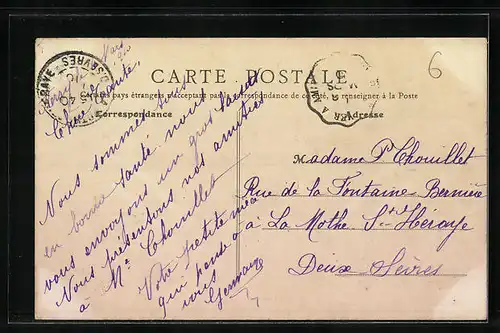 6
CARTE POSTALE
Certains pays étrangers n'acceptant pas la correspondance de ce côté, se renseigner à la Poste
Correspondance
Adresse
Nous sommes tous
en bonne santé, nous
vous envoyons un gros
Nous présentons nos amitiés
à Mr Chouillet
Votre petite
qui pense à
vous
Germaine
Madame P. Chouillet
Rue de la Fontaine Bernière
à La Mothe St Héraye
Deux-Sèvres